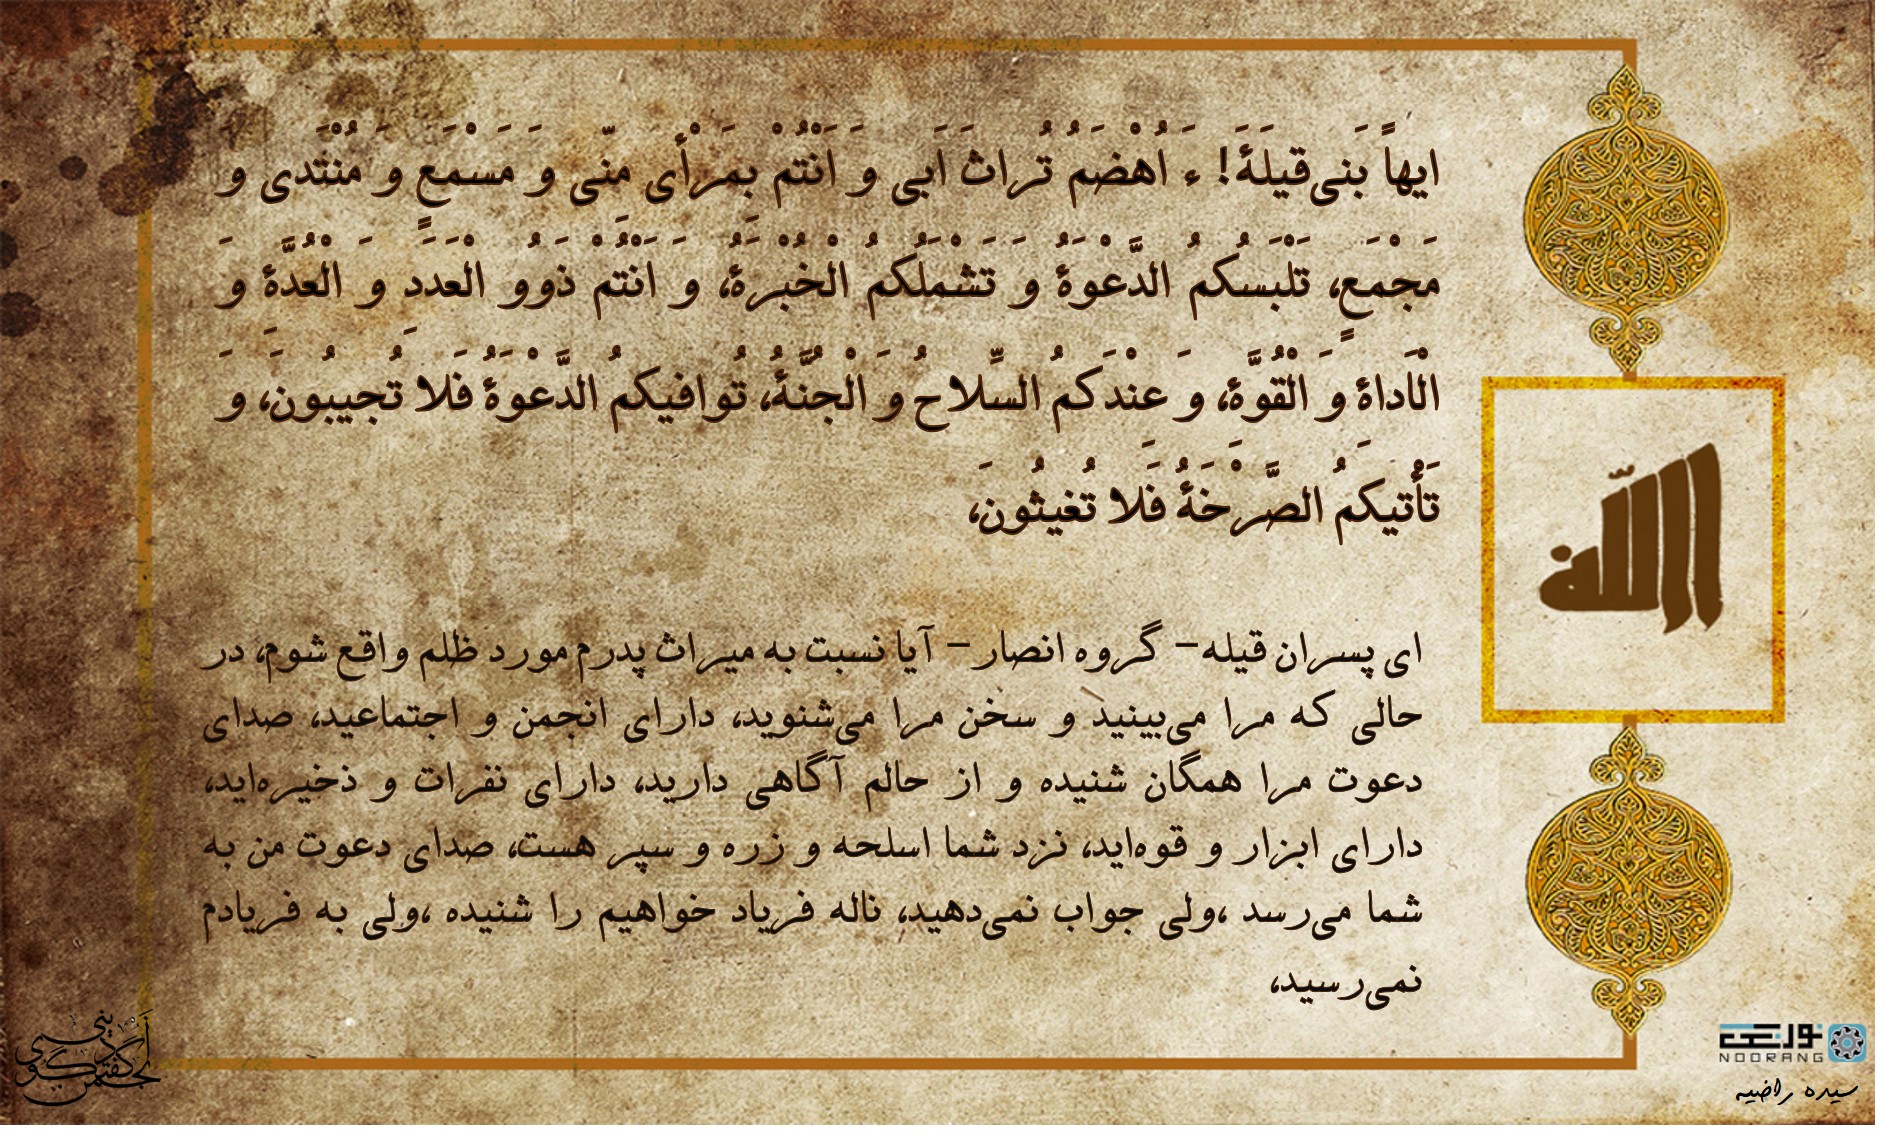 ایهاً بَنی‌قیلَةَ! ءَ اُهْضَمُ تُراثَ اَبی وَ اَنْتُمْ بِمَرْأی مِنّی وَ مَسْمَعٍ وَ مُنْتَدی وَ
مَجْمَعٍ، تَلْبَسُکُمُ الدَّعْوَةُ وَ تَشْمَلُکُمُ الْخُبْرَةُ، وَ اَنْتُمْ ذَوُو الْعَدَدِ وَ الْعُدَّةِ وَ
الْاَداةِ وَ الْقُوَّةِ، وَ عِنْدَکُمُ السِّلاحُ وَ الْجُنَّةُ، تُوافیکُمُ الدَّعْوَةُ فَلا تُجیبُونَ، وَ
تَأْتیکُمُ الصَّرْخَةُ فَلا تُغیثُونَ،
ای پسران قیله- گروه انصار- آیا نسبت به میراث پدرم مورد ظلم واقع شوم، در
حالی که مرا می‌بینید و سخن مرا می‌شنوید، دارای انجمن و اجتماعید، صدای
دعوت مرا همگان شنیده و از حالم آگاهی دارید، دارای نفرات و ذخیره‌اید،
دارای ابزار و قوه‌اید، نزد شما اسلحه و زره و سپر هست، صدای دعوت من به
شما می‌رسد ،ولی جواب نمی‌دهید، ناله فریاد خواهیم را شنیده ،ولی به فریادم
نمی‌رسید،
الله
انجمن گفتگوی دینی
نورنگ
NOORANG
سیده راضیه